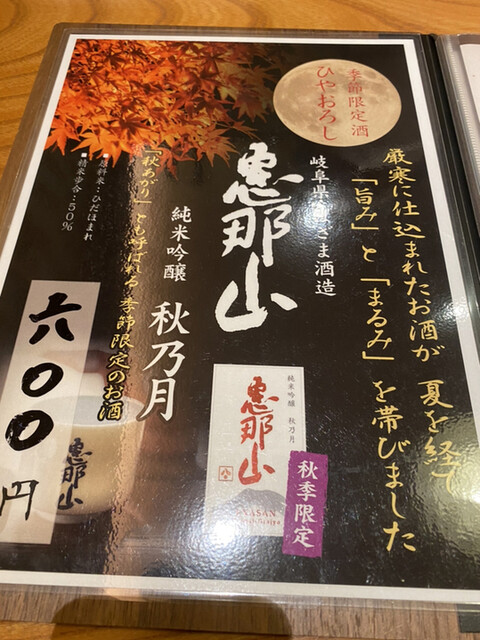 季節限定酒
ひやおろし
厳寒に仕込まれたお酒が 夏を経て
「旨み」と「まるみ」を帯びました
岐阜県 さま酒造
恵那山
純米吟醸 秋乃月
「秋あがり」とも呼ばれる季節限定のお酒
■原料米：ひだほまれ
■精米歩合：50%
六〇〇円
純米吟醸 秋乃月
恵那山
秋季限定
恵那山